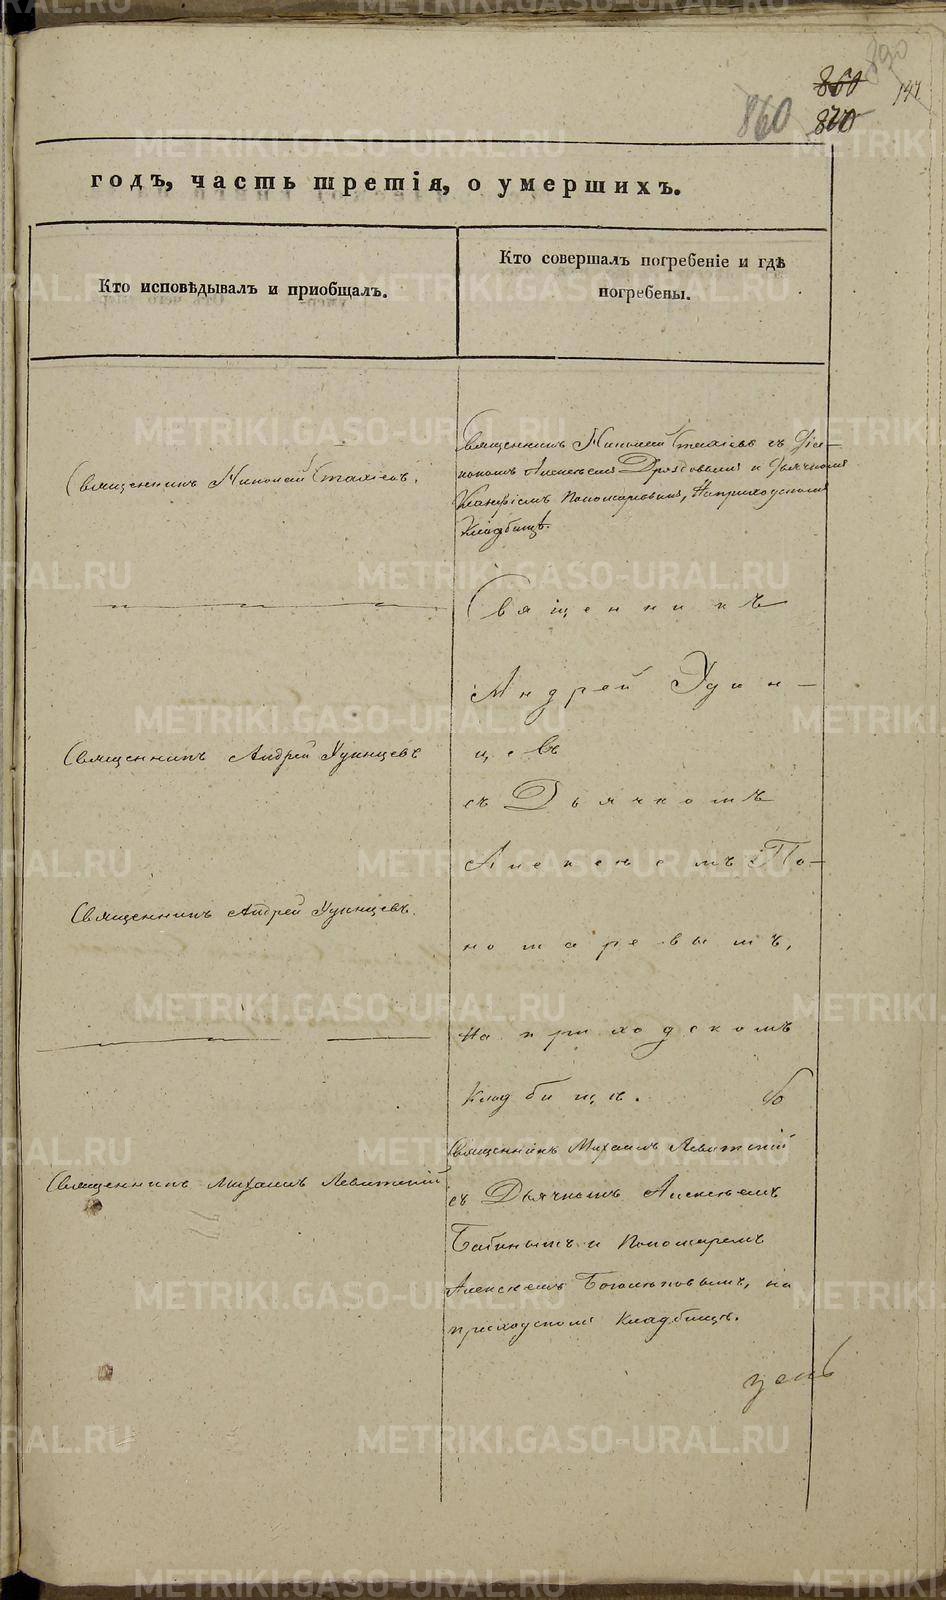 890
860
860
870
147
годъ, часть третія, о умершихъ.
Кто исповѣдывалъ и приобщалъ.
Кто совершалъ погребеніе и гдѣ
погребены.
Священникъ Николай
Священникъ Николай съ Діа-
кономъ Алексѣемъ Дроздовымъ и Дьячкомъ
Пономаревымъ, На приходскомъ
Кладбищѣ.
Священникъ
Андрей Удин-
цевъ
съ Дьячкомъ
Алексѣемъ По-
номаревымъ,
на приходскомъ
кладбищѣ.
Священникъ Андрей Удинцевъ
Священникъ Андрей Удинцевъ.
Священникъ Михаилъ Левитскій
Священникъ Михаилъ Левитскій
съ Дьячкомъ Алексѣемъ
Бабинымъ и Пономаремъ
Алексѣемъ на
приходскомъ Кладбищѣ.
METRIKI.GASO-URAL.RU